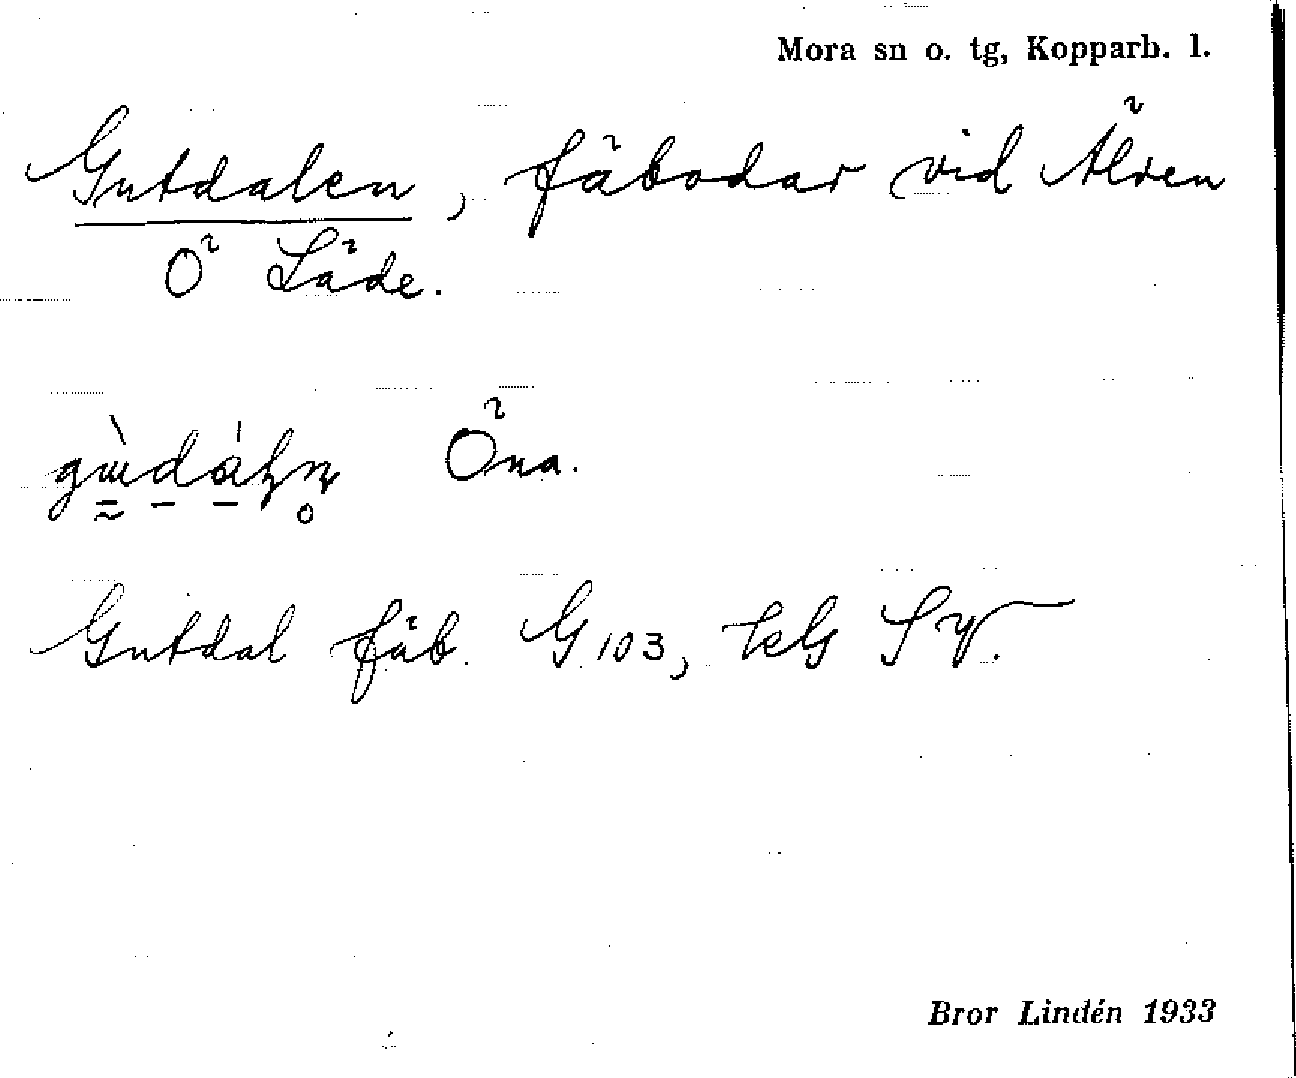 Mora sn o. tg, Kopparb. l.
Gutdalen, fäbodar vid Älven
Ö Läde.
Öna.
Gutdal fäb. G 103,
Bror Lindén 1933